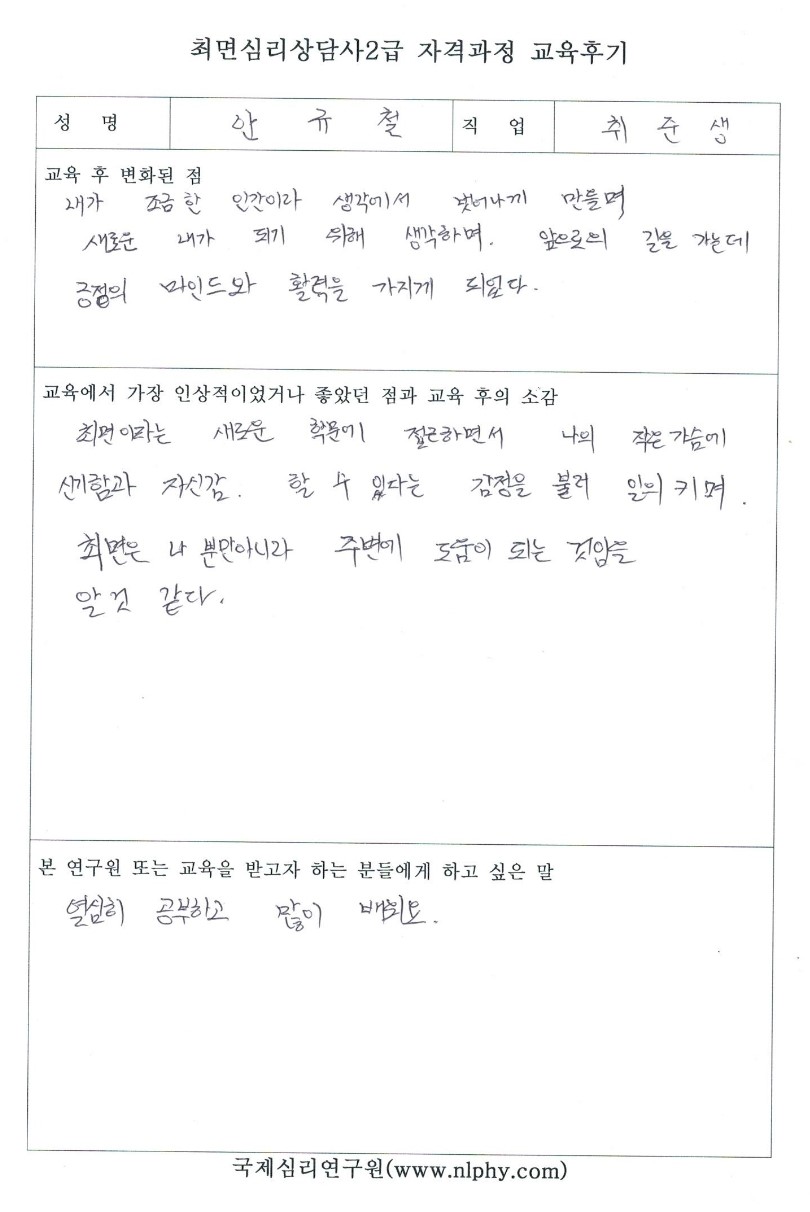 최면심리상담사2급 자격과정 교육후기
성 명 안 규 철 직 업 취 준 생
교육 후 변화된 점
내가 조금한 인간이라 생각에서 벗어나게 만들며
새로운 내가 되기 위해 생각하며. 앞으로의 길을 가는데
긍정의 마인드와 활력을 가지게 되었다.
교육에서 가장 인상적이었거나 좋았던 점과 교육 후의 소감
최면이라는 새로운 학문에 접근하면서 나의 작은 가슴에
신기함과 자신감. 할 수 있다는 감정을 불러 일의키며.
최면은 나 분만아니라 주변에 도움이 되는 것암을
알 것 같다.
본 연구원 또는 교육을 받고자 하는 분들에게 하고 싶은 말
열심히 공부하고 많이 배워요.
국제심리연구원(www.nlphy.com)